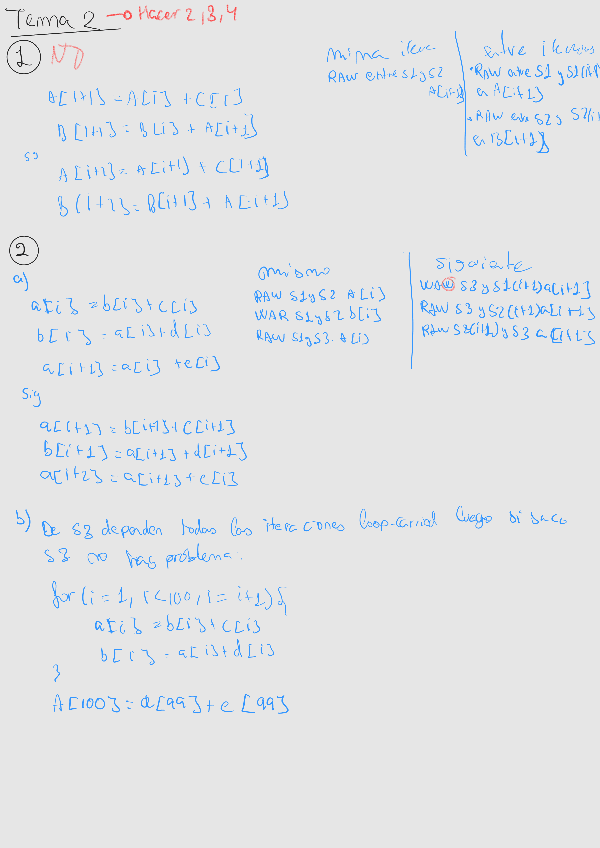 Tema 2 → Hacer 2, 3, 4
1 NO
misma itera
RAW entre S1 y S2
A[i+1]
entre iteracions
• RAW entre S1 y S1(i+1)
en A[i+1]
• RAW entre S2 y S2(i+1)
en B[i+1]
A[i+1] = A[i] + C[i]
B[i+1] = B[i] + A[i+1]
A[i+2] = A[i+1] + C[i+1]
B[i+2] = B[i+1] + A[i+1]
2
a)
mismo
RAW S1 y S2 A[i]
WAR S1 y S2 b[i]
RAW S1 y S3. A[i]
siguiente
WAW S3 y S1(i+1) a[i+1]
RAW S3 y S2(i+1) a[i+1]
RAW S2(i+1) y S3 a[i+1]
a[i] = b[i] + c[i]
b[i] = a[i] + d[i]
a[i+1] = a[i] + e[i]
Sig
a[i+1] = b[i+1] + c[i+1]
b[i+1] = a[i+1] + d[i+1]
a[i+2] = a[i+1] + e[i]
b) De S3 dependen todas las iteraciones loop-carrial luego si saco
S3 no hay problema.
for (i = 1, i < 100, i = i+1) {
a[i] = b[i] + c[i]
b[i] = a[i] + d[i]
}
A[100] = a[99] + e[99]